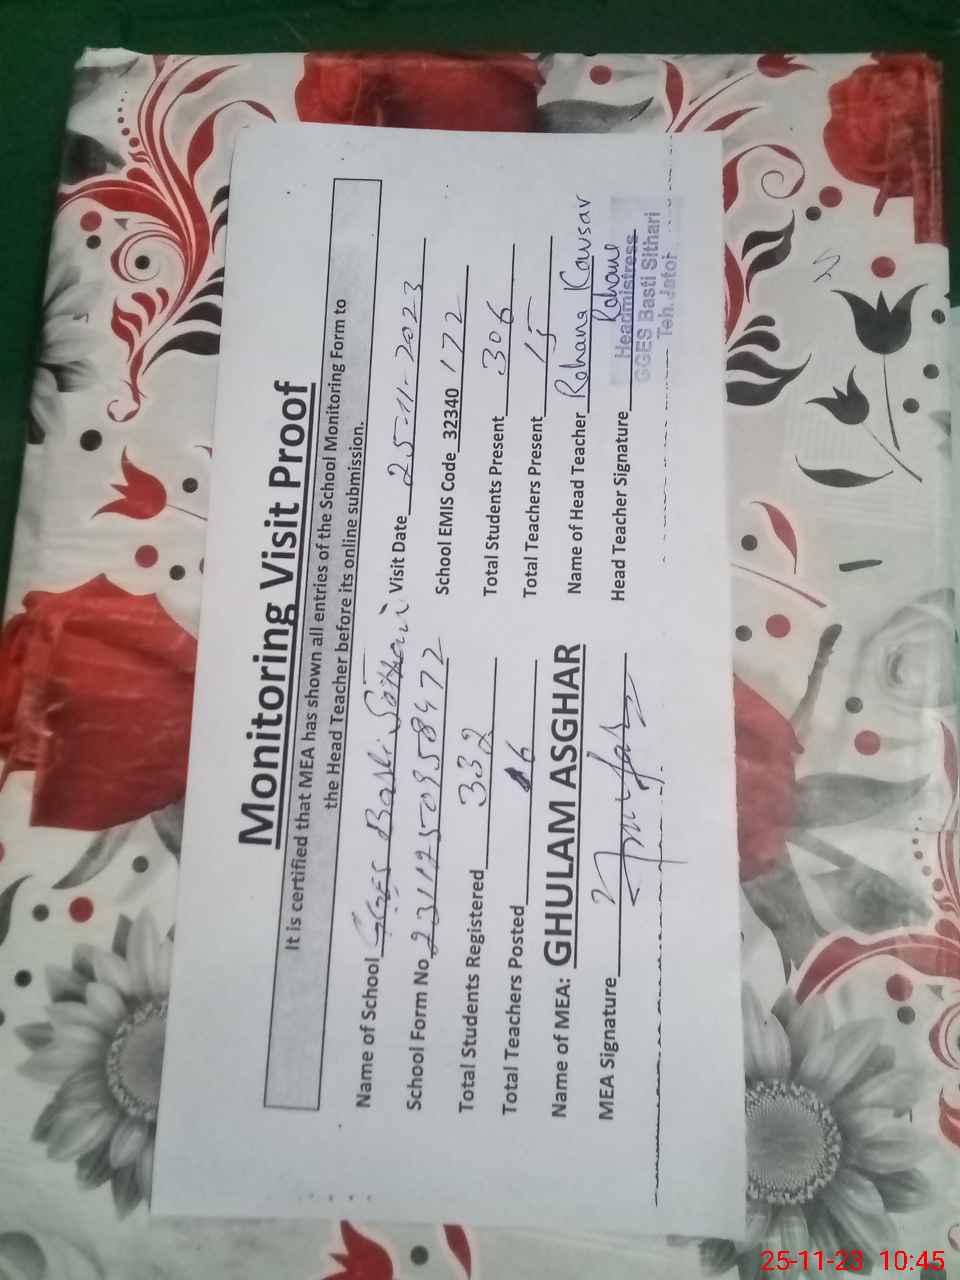 Monitoring Visit Proof
It is certified that MEA has shown all entries of the School Monitoring Form to
the Head Teacher before its online submission.
Name of School GGES Basti Sithari Visit Date 25-11-2023
School Form No 231125-0958472 School EMIS Code 32340172
Total Students Registered 332 Total Students Present 306
Total Teachers Posted 16 Total Teachers Present 15
Name of MEA: GHULAM ASGHAR Name of Head Teacher Rehana Kawsar
MEA Signature Head Teacher Signature Rehana
Headmistress
GGES Basti Sithari
Teh. Jatoi
25-11-23 10:45